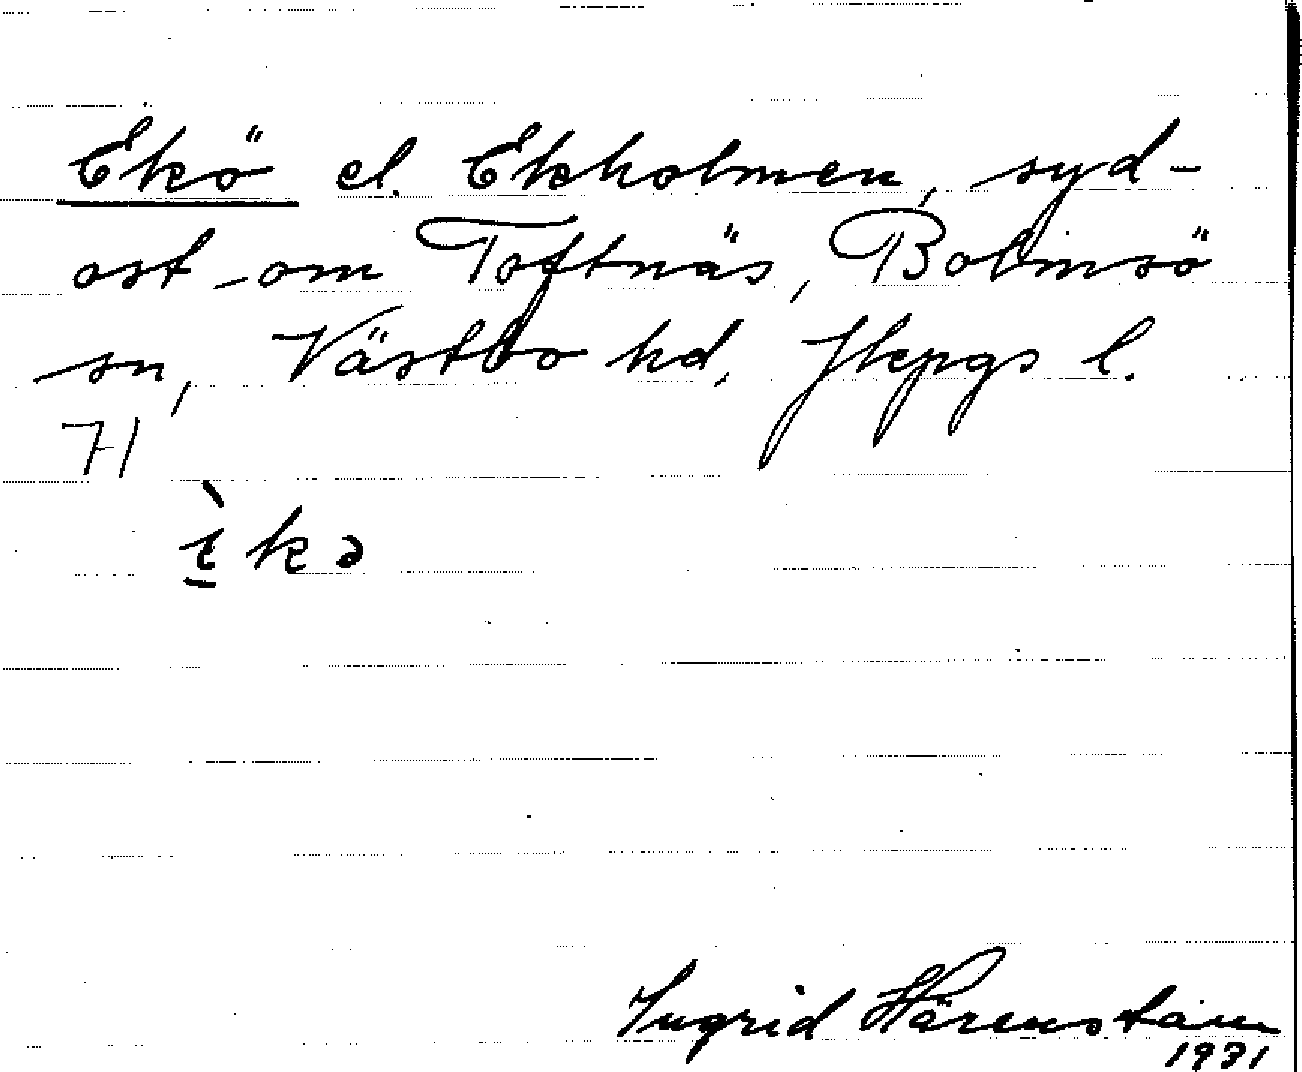 Ekö el. Ekholmen, syd-
ost om Toftnäs, Bolmsö
sn, Västbo hd, Jkpgs l.
71
ì̱kə
Ingrid Härenstam
1931